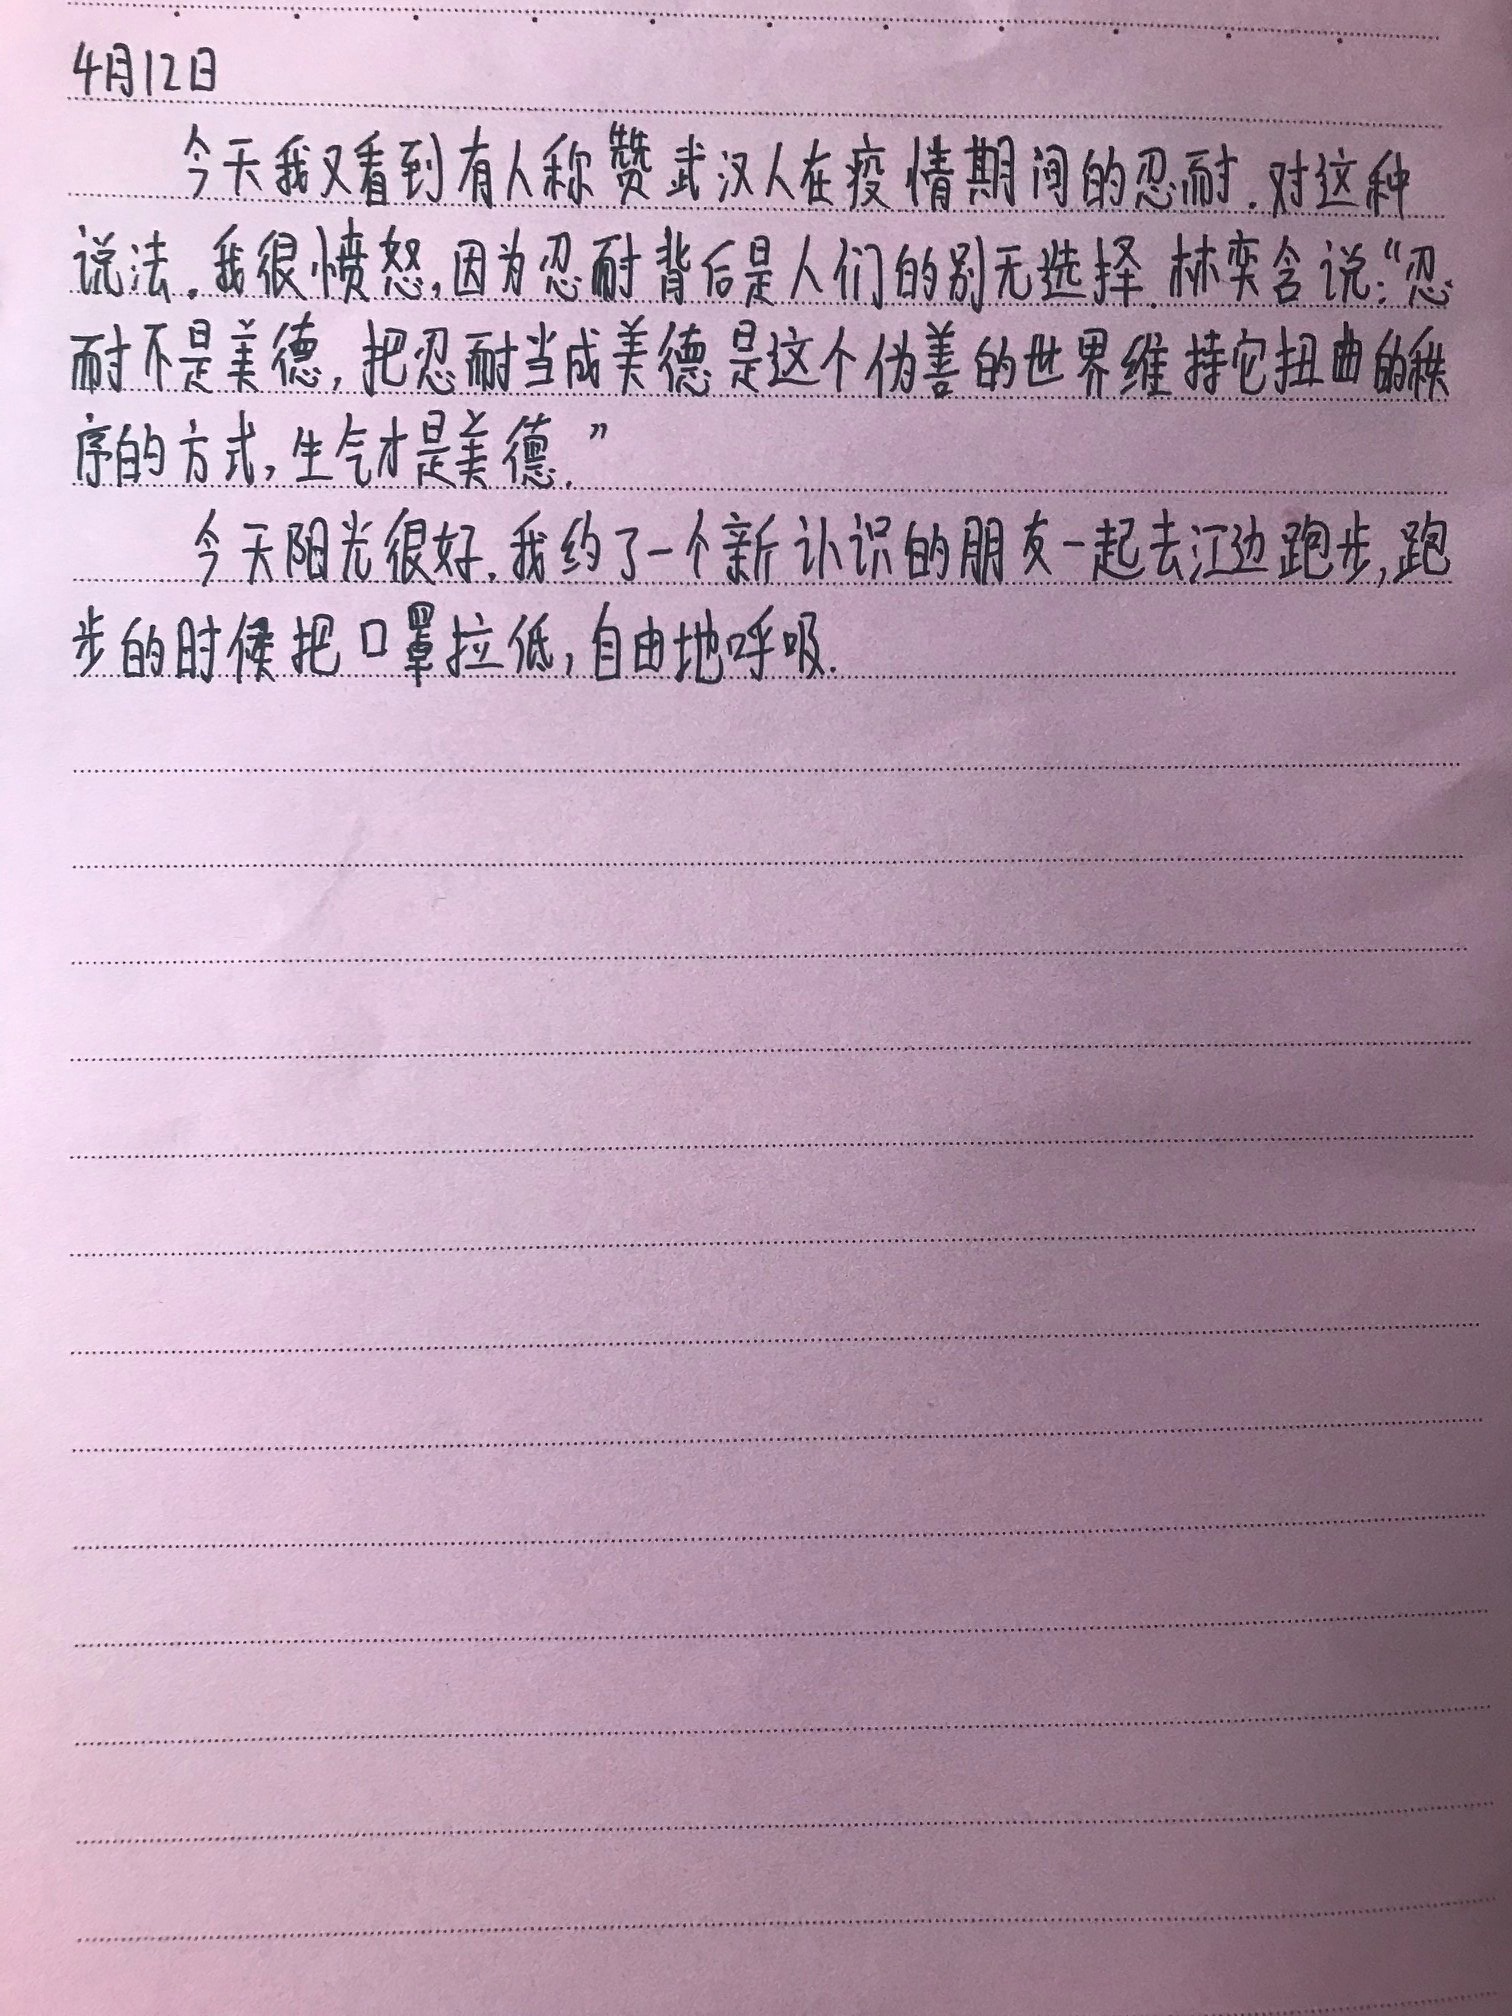 4月12日
今天我又看到有人称赞武汉人在疫情期间的忍耐.对这种
说法.我很愤怒,因为忍耐背后是人们的别无选择.林奕含说:“忍
耐不是美德,把忍耐当成美德是这个伪善的世界维持它扭曲的秩
序的方式,生气才是美德.”
今天阳光很好.我约了一个新认识的朋友一起去江边跑步,跑
步的时候把口罩拉低,自由地呼吸.